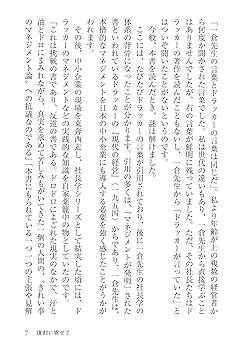 「一倉先生の言葉とドラッカーの言葉は同じだ」、私より年齢が上の複数の経営者か
ら何度か聞かされた言葉でした。私は世代の違いもあり、一倉先生から直接学ぶこと
はありませんでしたが、右の言葉が鮮明に残っていました。ただ、その社長たちはド
ラッカーの著作を読んだこともないし、一倉先生から「ドラッカーが言っていた」と
はついぞ聞いたことがないというのです。
今般、本書を読んだとき、謎は解けました。
ここには、多くのドラッカーの言葉が引用されており、後に一倉先生の社長学の
体系の背骨になったことが分かります。引用の多くは、「マネジメントが発明」された
書といわれているドラッカーの『現代の経営』（一九五四）からであり、一倉先生は、
本格的なマネジメントを日本の中小企業にも導入する必要を強く感じたことがうかが
われます。
その後、中小企業の現場を東奔西走し、社長学シリーズとして結実した頃には、ド
ラッカーのマネジメントなどの実践的な知識を自家薬籠中の物としていたのです。
「これは挑戦の書であり、反逆の書である。ドロドロによごれた現実のなかで、汗と
油とドロにまみれながら、真実を求めて苦しみもがいてきた一個の人間の、"きれい事
のマネジメント論"への抗議なのである」と本書に書かれている一つ一つの主張や見解
7　復刻に寄せて